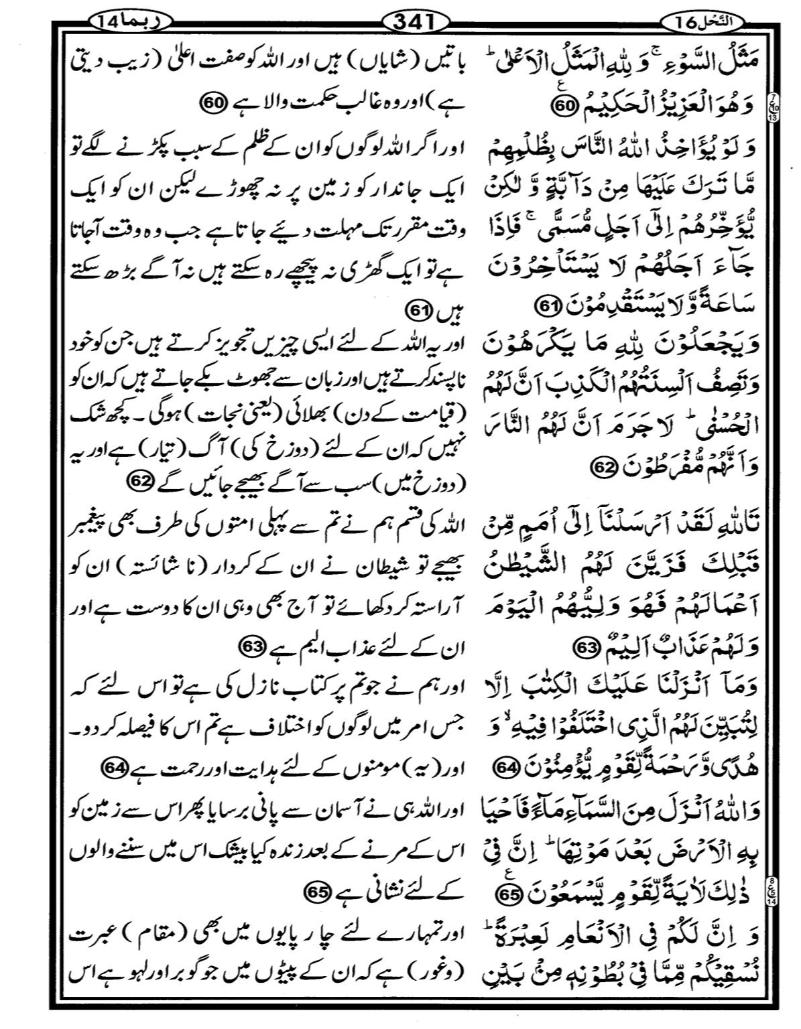 النَّحْل 16
341
رُبَمَا 14
مَثَلُ السَّوْءِ ۚ وَ لِلّٰهِ الْمَثَلُ الْاَعْلٰى ؕ
وَ هُوَ الْعَزِیْزُ الْحَكِیْمُ 60
وَ لَوْ یُؤَاخِذُ اللّٰهُ النَّاسَ بِظُلْمِهِمْ
مَّا تَرَكَ عَلَیْهَا مِنْ دَآبَّةٍ وَّ لٰكِنْ
یُّؤَخِّرُهُمْ اِلٰۤى اَجَلٍ مُّسَمًّى ۚ فَاِذَا
جَآءَ اَجَلُهُمْ لَا یَسْتَاْخِرُوْنَ
سَاعَةً وَّ لَا یَسْتَقْدِمُوْنَ 61
وَ یَجْعَلُوْنَ لِلّٰهِ مَا یَكْرَهُوْنَ
وَ تَصِفُ اَلْسِنَتُهُمُ الْكَذِبَ اَنَّ لَهُمُ
الْحُسْنٰى ؕ لَا جَرَمَ اَنَّ لَهُمُ النَّارَ
وَ اَنَّهُمْ مُّفْرَطُوْنَ 62
تَاللّٰهِ لَقَدْ اَرْسَلْنَاۤ اِلٰۤى اُمَمٍ مِّنْ
قَبْلِكَ فَزَیَّنَ لَهُمُ الشَّیْطٰنُ
اَعْمَالَهُمْ فَهُوَ وَلِیُّهُمُ الْیَوْمَ
وَ لَهُمْ عَذَابٌ اَلِیْمٌ 63
وَ مَاۤ اَنْزَلْنَا عَلَیْكَ الْكِتٰبَ اِلَّا
لِتُبَیِّنَ لَهُمُ الَّذِی اخْتَلَفُوْا فِیْهِ ۙ وَ
هُدًى وَّ رَحْمَةً لِّقَوْمٍ یُّؤْمِنُوْنَ 64
وَ اللّٰهُ اَنْزَلَ مِنَ السَّمَآءِ مَآءً فَاَحْیَا
بِهِ الْاَرْضَ بَعْدَ مَوْتِهَا ؕ اِنَّ فِیْ
ذٰلِكَ لَاٰیَةً لِّقَوْمٍ یَّسْمَعُوْنَ 65
وَ اِنَّ لَكُمْ فِی الْاَنْعَامِ لَعِبْرَةً ؕ
نُسْقِیْكُمْ مِّمَّا فِیْ بُطُوْنِهٖ مِنْۢ بَیْنِ
باتیں (شایاں) ہیں اور اللہ کو صفت اعلیٰ (زیب دیتی
ہے) اور وہ غالب حکمت والا ہے 60
اور اگر اللہ لوگوں کو ان کے ظلم کے سبب پکڑنے لگے تو
ایک جاندار کو زمین پر نہ چھوڑے لیکن ان کو ایک
وقت مقرر تک مہلت دئیے جاتا ہے جب وہ وقت آ جاتا
ہے تو ایک گھڑی نہ پیچھے رہ سکتے ہیں نہ آگے بڑھ سکتے
ہیں 61
اور یہ اللہ کے لئے ایسی چیزیں تجویز کرتے ہیں جن کو خود
ناپسند کرتے ہیں اور زبان سے جھوٹ بکے جاتے ہیں کہ ان کو
(قیامت کے دن) بھلائی (یعنی نجات) ہوگی ۔ کچھ شک
نہیں کہ ان کے لئے (دوزخ کی) آگ (تیار) ہے اور یہ
(دوزخ میں) سب سے آگے بھیجے جائیں گے 62
اللہ کی قسم ہم نے تم سے پہلی امتوں کی طرف بھی پیغمبر
بھیجے تو شیطان نے ان کے کردار (ناشائستہ) ان کو
آراستہ کر دکھائے تو آج بھی وہی ان کا دوست ہے اور
ان کے لئے عذاب الیم ہے 63
اور ہم نے جو تم پر کتاب نازل کی ہے تو اس لئے کہ
جس امر میں لوگوں کو اختلاف ہے تم اس کا فیصلہ کر دو۔
اور (یہ) مومنوں کے لئے ہدایت اور رحمت ہے 64
اور اللہ ہی نے آسمان سے پانی برسایا پھر اس سے زمین کو
اس کے مرنے کے بعد زندہ کیا بیشک اس میں سننے والوں
کے لئے نشانی ہے 65
اور تمہارے لئے چار پایوں میں بھی (مقام) عبرت
(وغور) ہے کہ ان کے پیٹوں میں جو گوبر اور لہو ہے اس